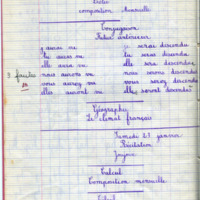 Dictée
composition Mensuelle
Conjugaison
Futur antérieur
j'aurai vu je serai descendu
tu auras vu tu seras descendu
elle aura vu elle sera descendue
3 fautes nous aurons vu nous serons descendus
vous aurez vu vous serez descendus
elles auront vu elles seront descendues
Géographie
Le climat français
Samedi 27 janvier
Récitation
Calcul
Composition mensuelle